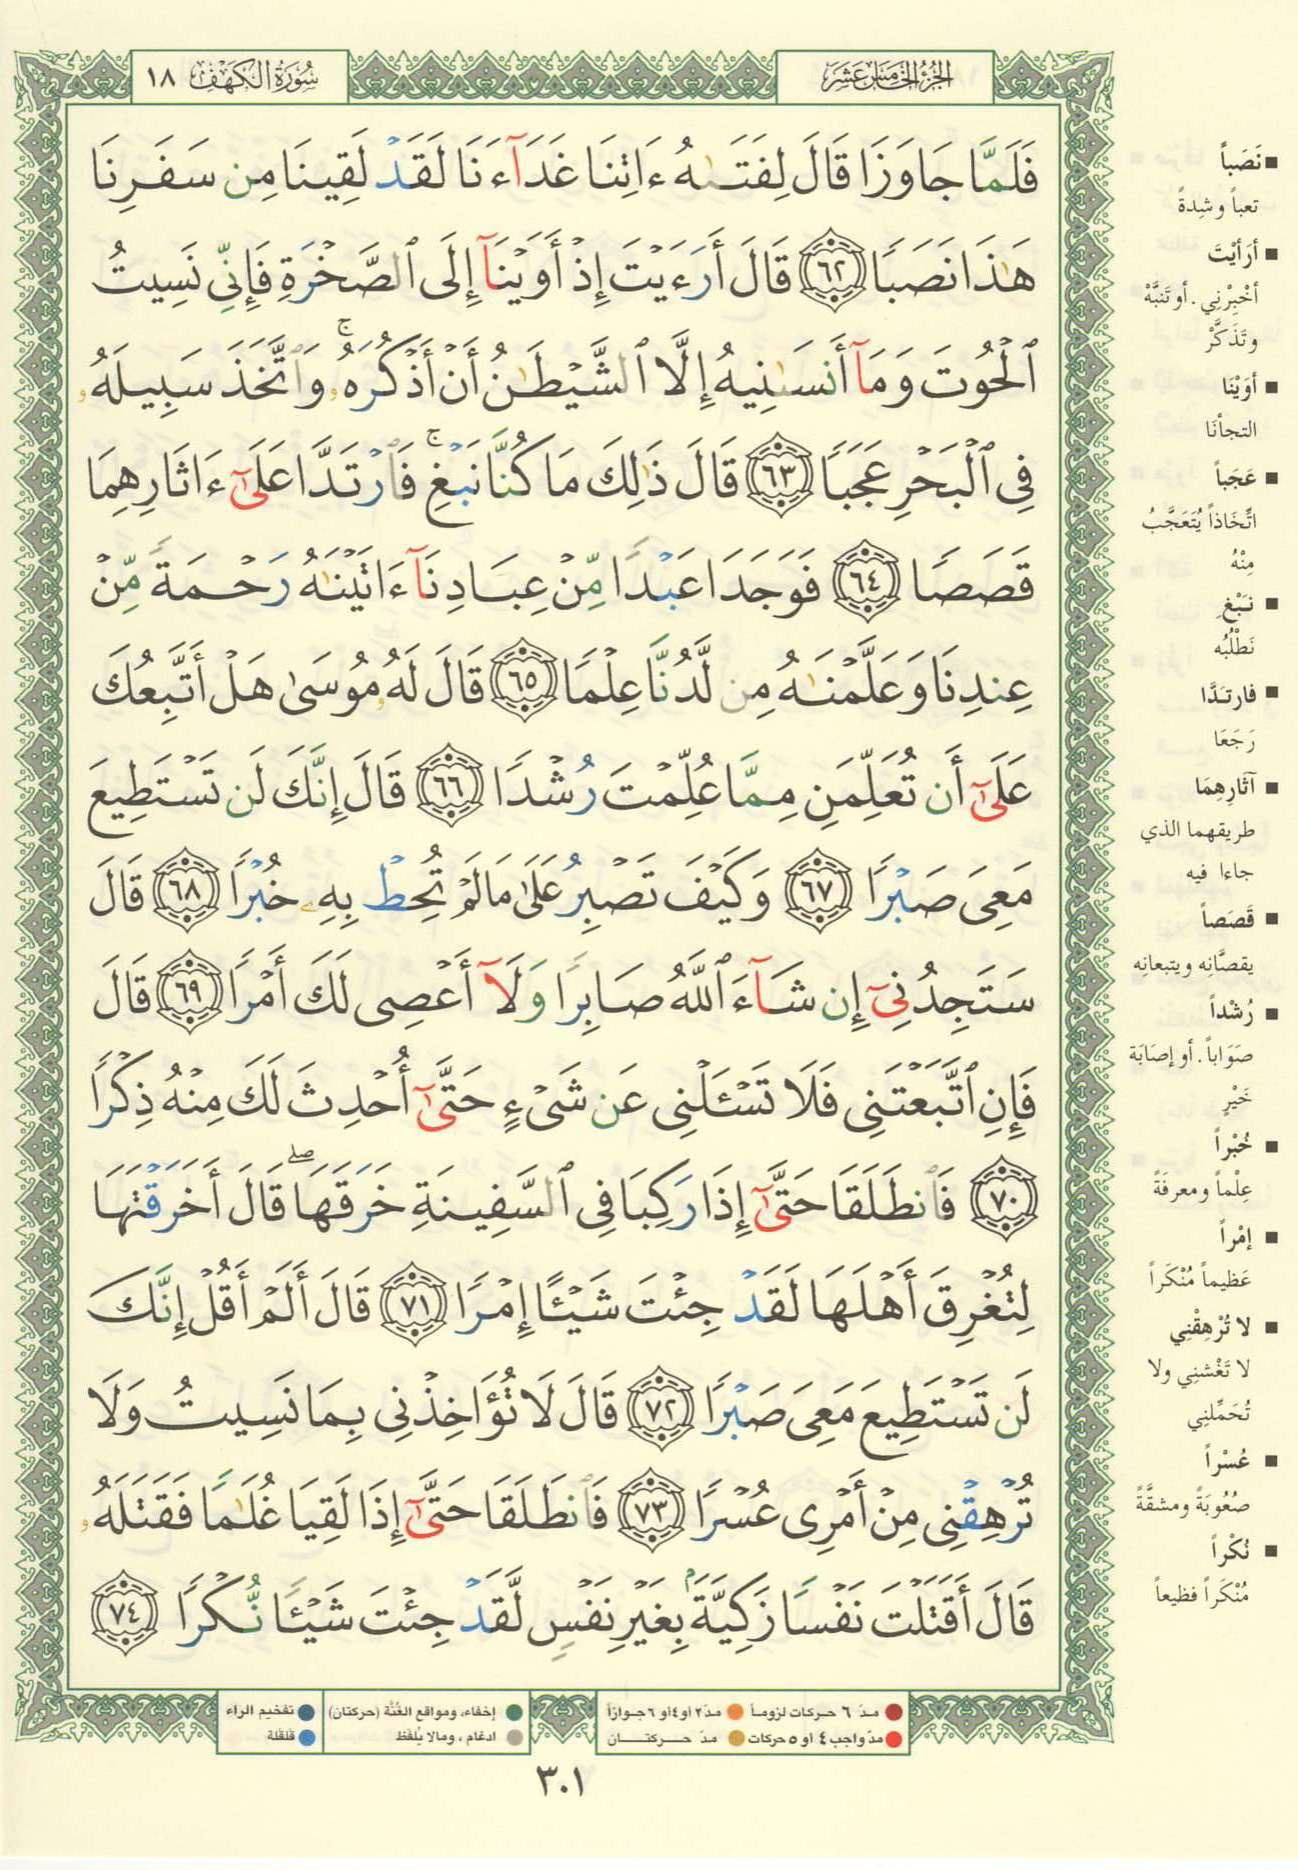 سُورَةُ الكَهْفِ ١٨
الجُزْءُ الخَامِسَ عَشَرَ
فَلَمَّا جَاوَزَا قَالَ لِفَتَىٰهُ ءَاتِنَا غَدَآءَنَا لَقَدْ لَقِينَا مِن سَفَرِنَا
هَٰذَا نَصَبًا ٦٢ قَالَ أَرَءَيْتَ إِذْ أَوَيْنَآ إِلَى ٱلصَّخْرَةِ فَإِنِّى نَسِيتُ
ٱلْحُوتَ وَمَآ أَنسَىٰنِيهُ إِلَّا ٱلشَّيْطَٰنُ أَنْ أَذْكُرَهُۥ ۚ وَٱتَّخَذَ سَبِيلَهُۥ
فِى ٱلْبَحْرِ عَجَبًا ٦٣ قَالَ ذَٰلِكَ مَا كُنَّا نَبْغِ ۚ فَٱرْتَدَّا عَلَىٰٓ ءَاثَارِهِمَا
قَصَصًا ٦٤ فَوَجَدَا عَبْدًا مِّنْ عِبَادِنَآ ءَاتَيْنَٰهُ رَحْمَةً مِّنْ
عِندِنَا وَعَلَّمْنَٰهُ مِن لَّدُنَّا عِلْمًا ٦٥ قَالَ لَهُۥ مُوسَىٰ هَلْ أَتَّبِعُكَ
عَلَىٰٓ أَن تُعَلِّمَنِ مِمَّا عُلِّمْتَ رُشْدًا ٦٦ قَالَ إِنَّكَ لَن تَسْتَطِيعَ
مَعِىَ صَبْرًا ٦٧ وَكَيْفَ تَصْبِرُ عَلَىٰ مَا لَمْ تُحِطْ بِهِۦ خُبْرًا ٦٨ قَالَ
سَتَجِدُنِىٓ إِن شَآءَ ٱللَّهُ صَابِرًا وَلَآ أَعْصِى لَكَ أَمْرًا ٦٩ قَالَ
فَإِنِ ٱتَّبَعْتَنِى فَلَا تَسْـَٔلْنِى عَن شَىْءٍ حَتَّىٰٓ أُحْدِثَ لَكَ مِنْهُ ذِكْرًا
٧٠ فَٱنطَلَقَا حَتَّىٰٓ إِذَا رَكِبَا فِى ٱلسَّفِينَةِ خَرَقَهَا ۖ قَالَ أَخَرَقْتَهَا
لِتُغْرِقَ أَهْلَهَا لَقَدْ جِئْتَ شَيْـًٔا إِمْرًا ٧١ قَالَ أَلَمْ أَقُلْ إِنَّكَ
لَن تَسْتَطِيعَ مَعِىَ صَبْرًا ٧٢ قَالَ لَا تُؤَاخِذْنِى بِمَا نَسِيتُ وَلَا
تُرْهِقْنِى مِنْ أَمْرِى عُسْرًا ٧٣ فَٱنطَلَقَا حَتَّىٰٓ إِذَا لَقِيَا غُلَٰمًا فَقَتَلَهُۥ
قَالَ أَقَتَلْتَ نَفْسًا زَكِيَّةًۢ بِغَيْرِ نَفْسٍ لَّقَدْ جِئْتَ شَيْـًٔا نُّكْرًا ٧٤
■ نَصَباً
تعباً وشِدةً
■ أرَأيْتَ
أخْبِرْنِي. أو تَنَبَّهْ
وتَذَكَّرْ
■ أوَيْنَا
التجأنَا
■ عَجَباً
اتِّخَاذاً يُتَعَجَّبُ
مِنْهُ
■ نَبْغِ
نَطْلُبُه
■ فارتدَّا
رَجَعَا
■ آثَارِهِمَا
طريقهما الذي
جاءا فيه
■ قَصَصاً
يقصَّانِه ويتبعانِه
■ رُشْداً
صَوَاباً. أو إصَابَة
خَيْرٍ
■ خُبْراً
عِلْماً ومعرفَةً
■ إمْراً
عَظيماً مُنْكَراً
■ لا تُرْهِقْنِي
لا تَغْشنِي ولا
تُحَمِّلنِي
■ عُسْراً
صُعُوبَةً ومشقَّةً
■ نُكْراً
مُنْكَراً فظيعاً
مدّ ٦ حركات لزوماً
مدّ٢ أو٤أو ٦جوازاً
مدّ واجب٤ أو ٥ حركات
مدّ حــركتــان
إخفاء، ومواقع الغُنَّة (حركتان)
ادغام ، ومالا يُلفَظ
تفخيم الراء
قلقلة
٣٠١